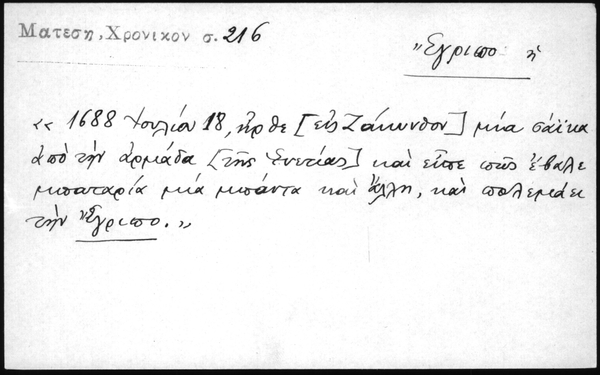 Ματεση, Χρονικον σ. 216
Ἔγριπο ἡ
« 1688 Ἰουλίου 18, ἦρθε [εἰς Ζάκυνθον] μία σαΐκα
ἀπὸ τὴν ἀρμάδα [τῆς Ἑνετίας] καὶ εἶπε πῶς ἔβαλε
μπαταρία μία μπάντα καὶ ἄλλη, καὶ πολεμάει
τὴν Ἔγριπο. »